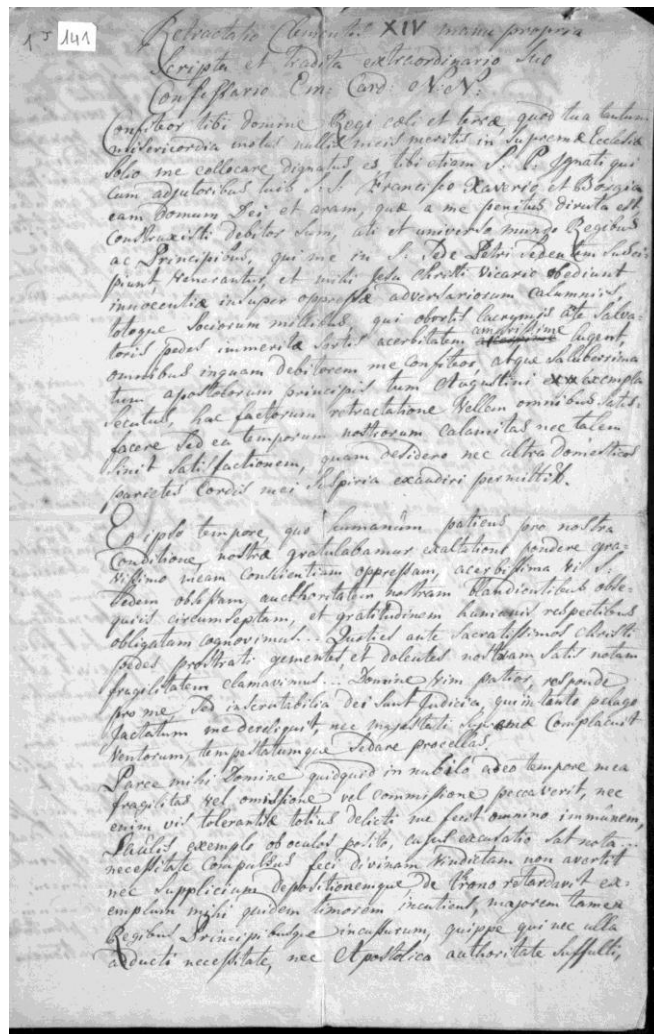 1 J 141
Retractatio Clementis XIV manu propria
Scripta et tradita extraordinario Suo
Confessario Em: Card: N: N:
Confiteor tibi Domine Regi cæli et terræ, quod tua tantum
misericordia motus nullis meis meritis in Supremæ Ecclesiæ
Solio me collocare dignatus es tibi etiam S. P. Ignati qui
cum adjutoribus tuis S: S: Francisco Xaverio et Borgia
eam domum Dei, et aram, quæ a me penitus diruta est
construxisti debitor sum, uti et universæ mundo Regibus
ac Principibus, qui me in S: Sede Petri Sedentem Susci-
piunt, venerantur, et mihi Jesu Christi Vicario obediunt
innocentiæ insuper oppressæ adversariorum calumniis,
totque Sociorum millibus, qui obortis lacrymis ante Salva-
toris pedes immeritæ Sortis acerbitatem amarissime lugent,
omnibus inquam debitorem me confiteor, atque Saluberrima
tum apostolorum principis tum Augustini exempla
Secutus, hac factorum retractatione Vellem omnibus Satis-
facere Sed ea temporum nostrorum calamitas nec talem
Sinit Satisfactionem, quam desidero nec ultra domesticos
parietes Cordis mei Suspiria exaudiri permittit.
Eo ipso tempore, quo humanum patiens pro nostra
Conditione, nostræ gratulabamur exaltationi pondere gra-
vissimo meam conscientiam oppressam, acerbissima vi S:
Sedem obsessam, aucthoritatem nostram blandientibus obse-
quiis circumseptam, et gratitudinem humanis respectibus
obligatam cognovimus... Quoties ante Sacratissimos Christi
pedes prostrati gementes, et dolentes nostram Satis notam
fragilitatem clamavimus... Domine vim patior, responde
pro me, Sed inscrutabilia Dei Sunt Judicia, qui in tanto pelago
Jactatum me dereliquit, nec majestati Supremæ Complacuit
Ventorum, tempestatumque Sedare procellas.
Parce mihi Domine quidquid in nubilo adeo tempore mea
fragilitas vel omissione vel commissione peccaverit, nec
enim vis tolerantiæ totius delicti me fecit omnino immunem,
Saulis exemplo ob oculos posito, cujus excusatio Sat nota...
necessitate Compulsus feci divinam vindictam non avertit
nec Supplicium depositionemque de trono retardavit ex-
emplum mihi quidem timorem incutiens, majorem tamen
Regibus Principibusque incussurum, quippe qui nec ulla
adducti necessitate, nec Apostolica authoritate Suffulti,